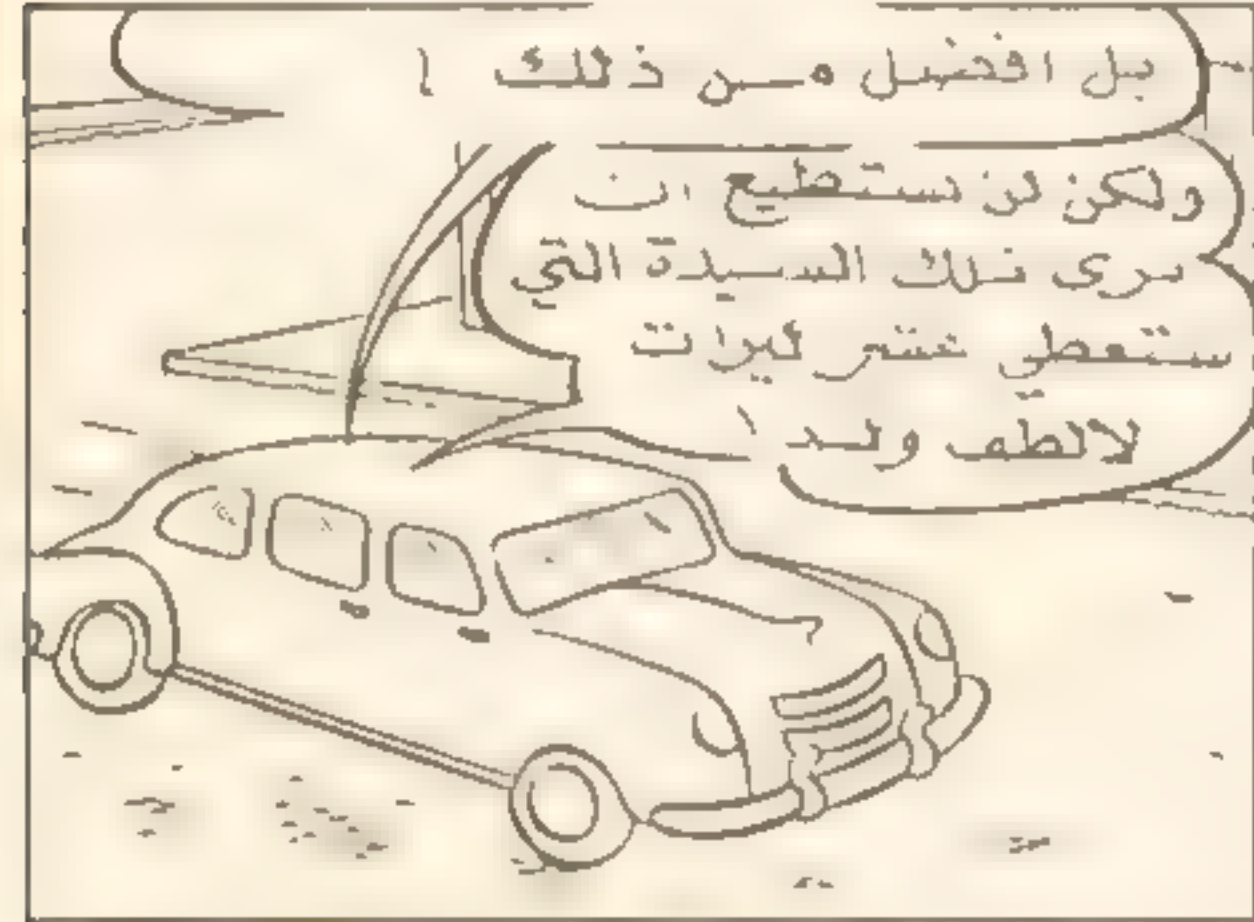 بل افضل من ذلك !
ولكن لن نستطيع ان
نرى تلك السيدة التي
ستعطي عشر ليرات
لالطف ولد !